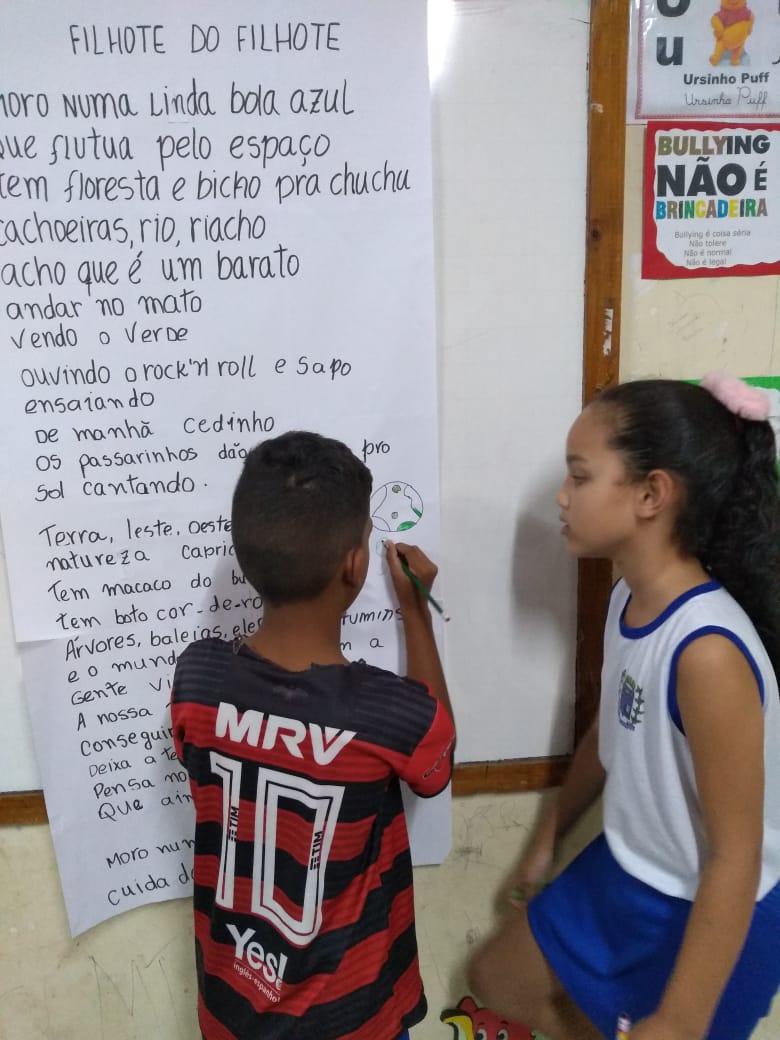 FILHOTE DO FILHOTE
MORO NUMA Linda bola azul
que flutua pelo espaço
tem floresta e bicho pra chuchu
cachoeiras, rio, riacho
acho que é um barato
andar no mato
vendo o verde
ouvindo o rock'n roll e sapo
ensaiando
De manhã cedinho
os passarinhos dão pro
sol cantando.
Terra, leste, oeste
natureza
Tem macaco do
tem boto cor-de-ro
Árvores, baleias,
e o mund a
Gente
A nossa
conseguir
Deixa a
Pensa no
Que ain
Moro num
cuida d
MRV
10
TIM
TIM
Yes!
inglês·espanhol
u
Ursinho Puff
Ursinho Puff
BULLYING
NÃO É
BRINCADEIRA
Bullying é coisa séria
Não tolere
Não é normal
Não é legal